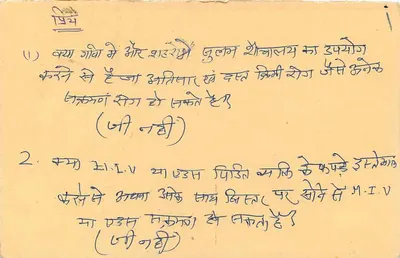 प्रिय
i
(1) क्या गांवो मे और शहरो मे सुलभ शौचालय का उपयोग
करने से हैजा अतिसार एवं दस्त क्रिमी रोग जैसे अनेक
संक्रमण रोग हो सकते है?
(जी नही)
2. क्या H.I.V या एडस पिडित व्यक्ति के कपड़े इस्तेमाल
करने से अथवा उनके साथ बिस्तर पर सोने से H.I.V
या एडस संक्रमण हो सकता है?
(जी नही)